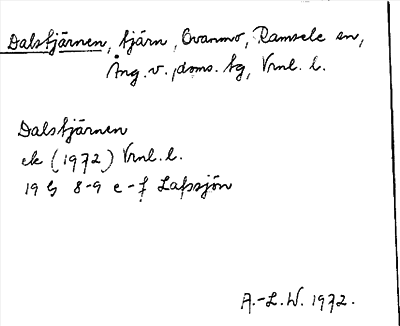 Dalstjärnen, tjärn, Ovanmo, Ramsele sn,
Ång. v. doms. tg, Vrnl. l.
Dalstjärnen
ek (1972) Vrnl. l.
19 G 8-9 e-f Lafssjön
A.-L.W. 1972.